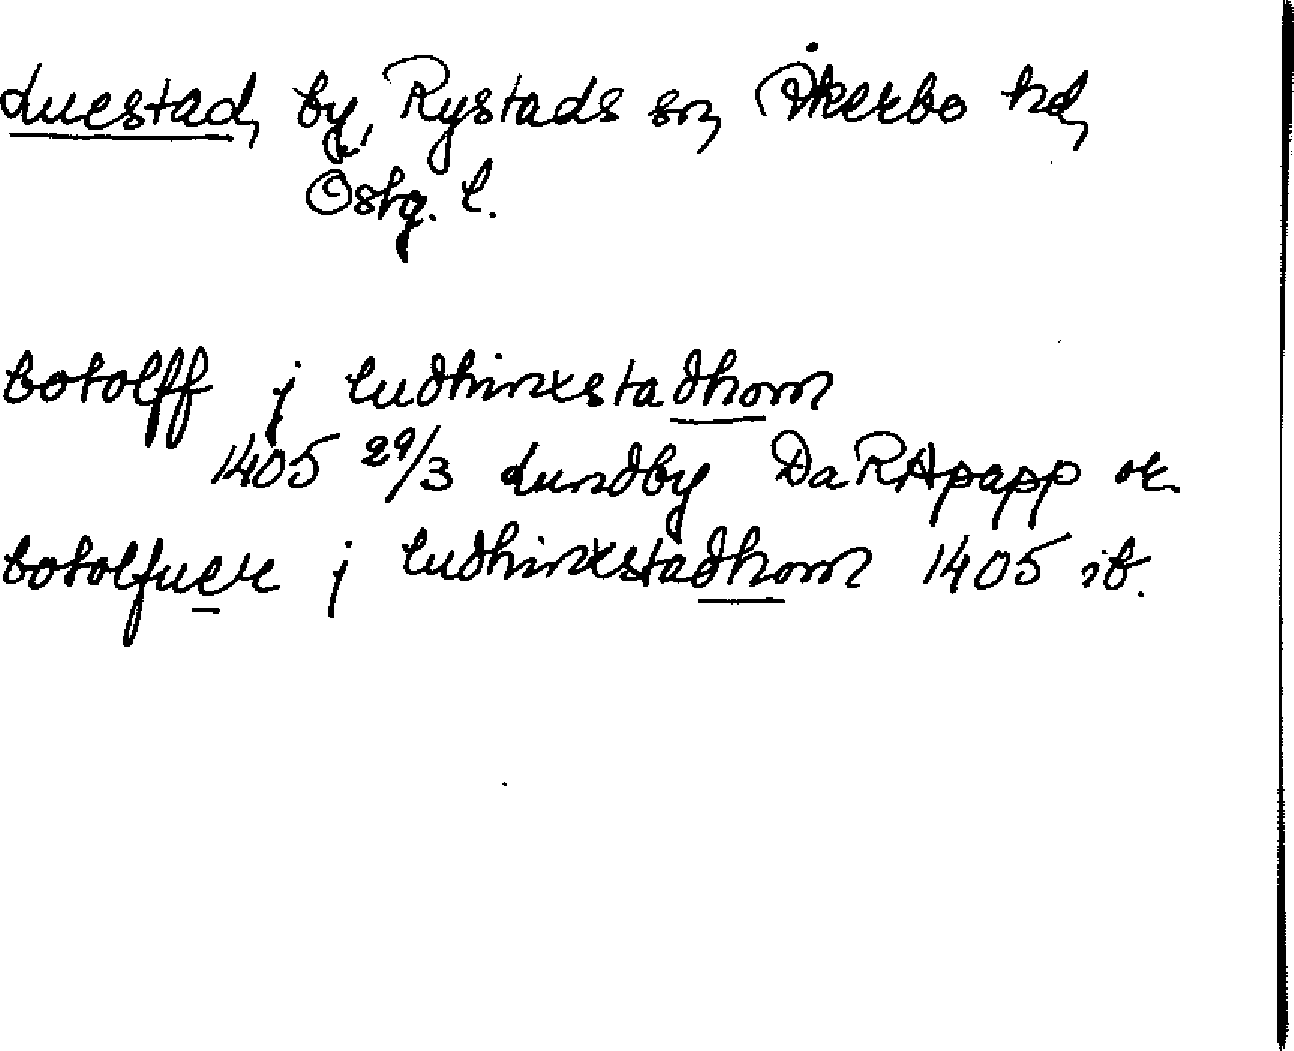 Luestad, by, Rystads sn, Åkerbo hd,
Östg. l.
botolff j ludhinxstadhom
1405 29/3 Lundby DaRApapp or.
botolfuer j ludhinxstadhom 1405 ib.